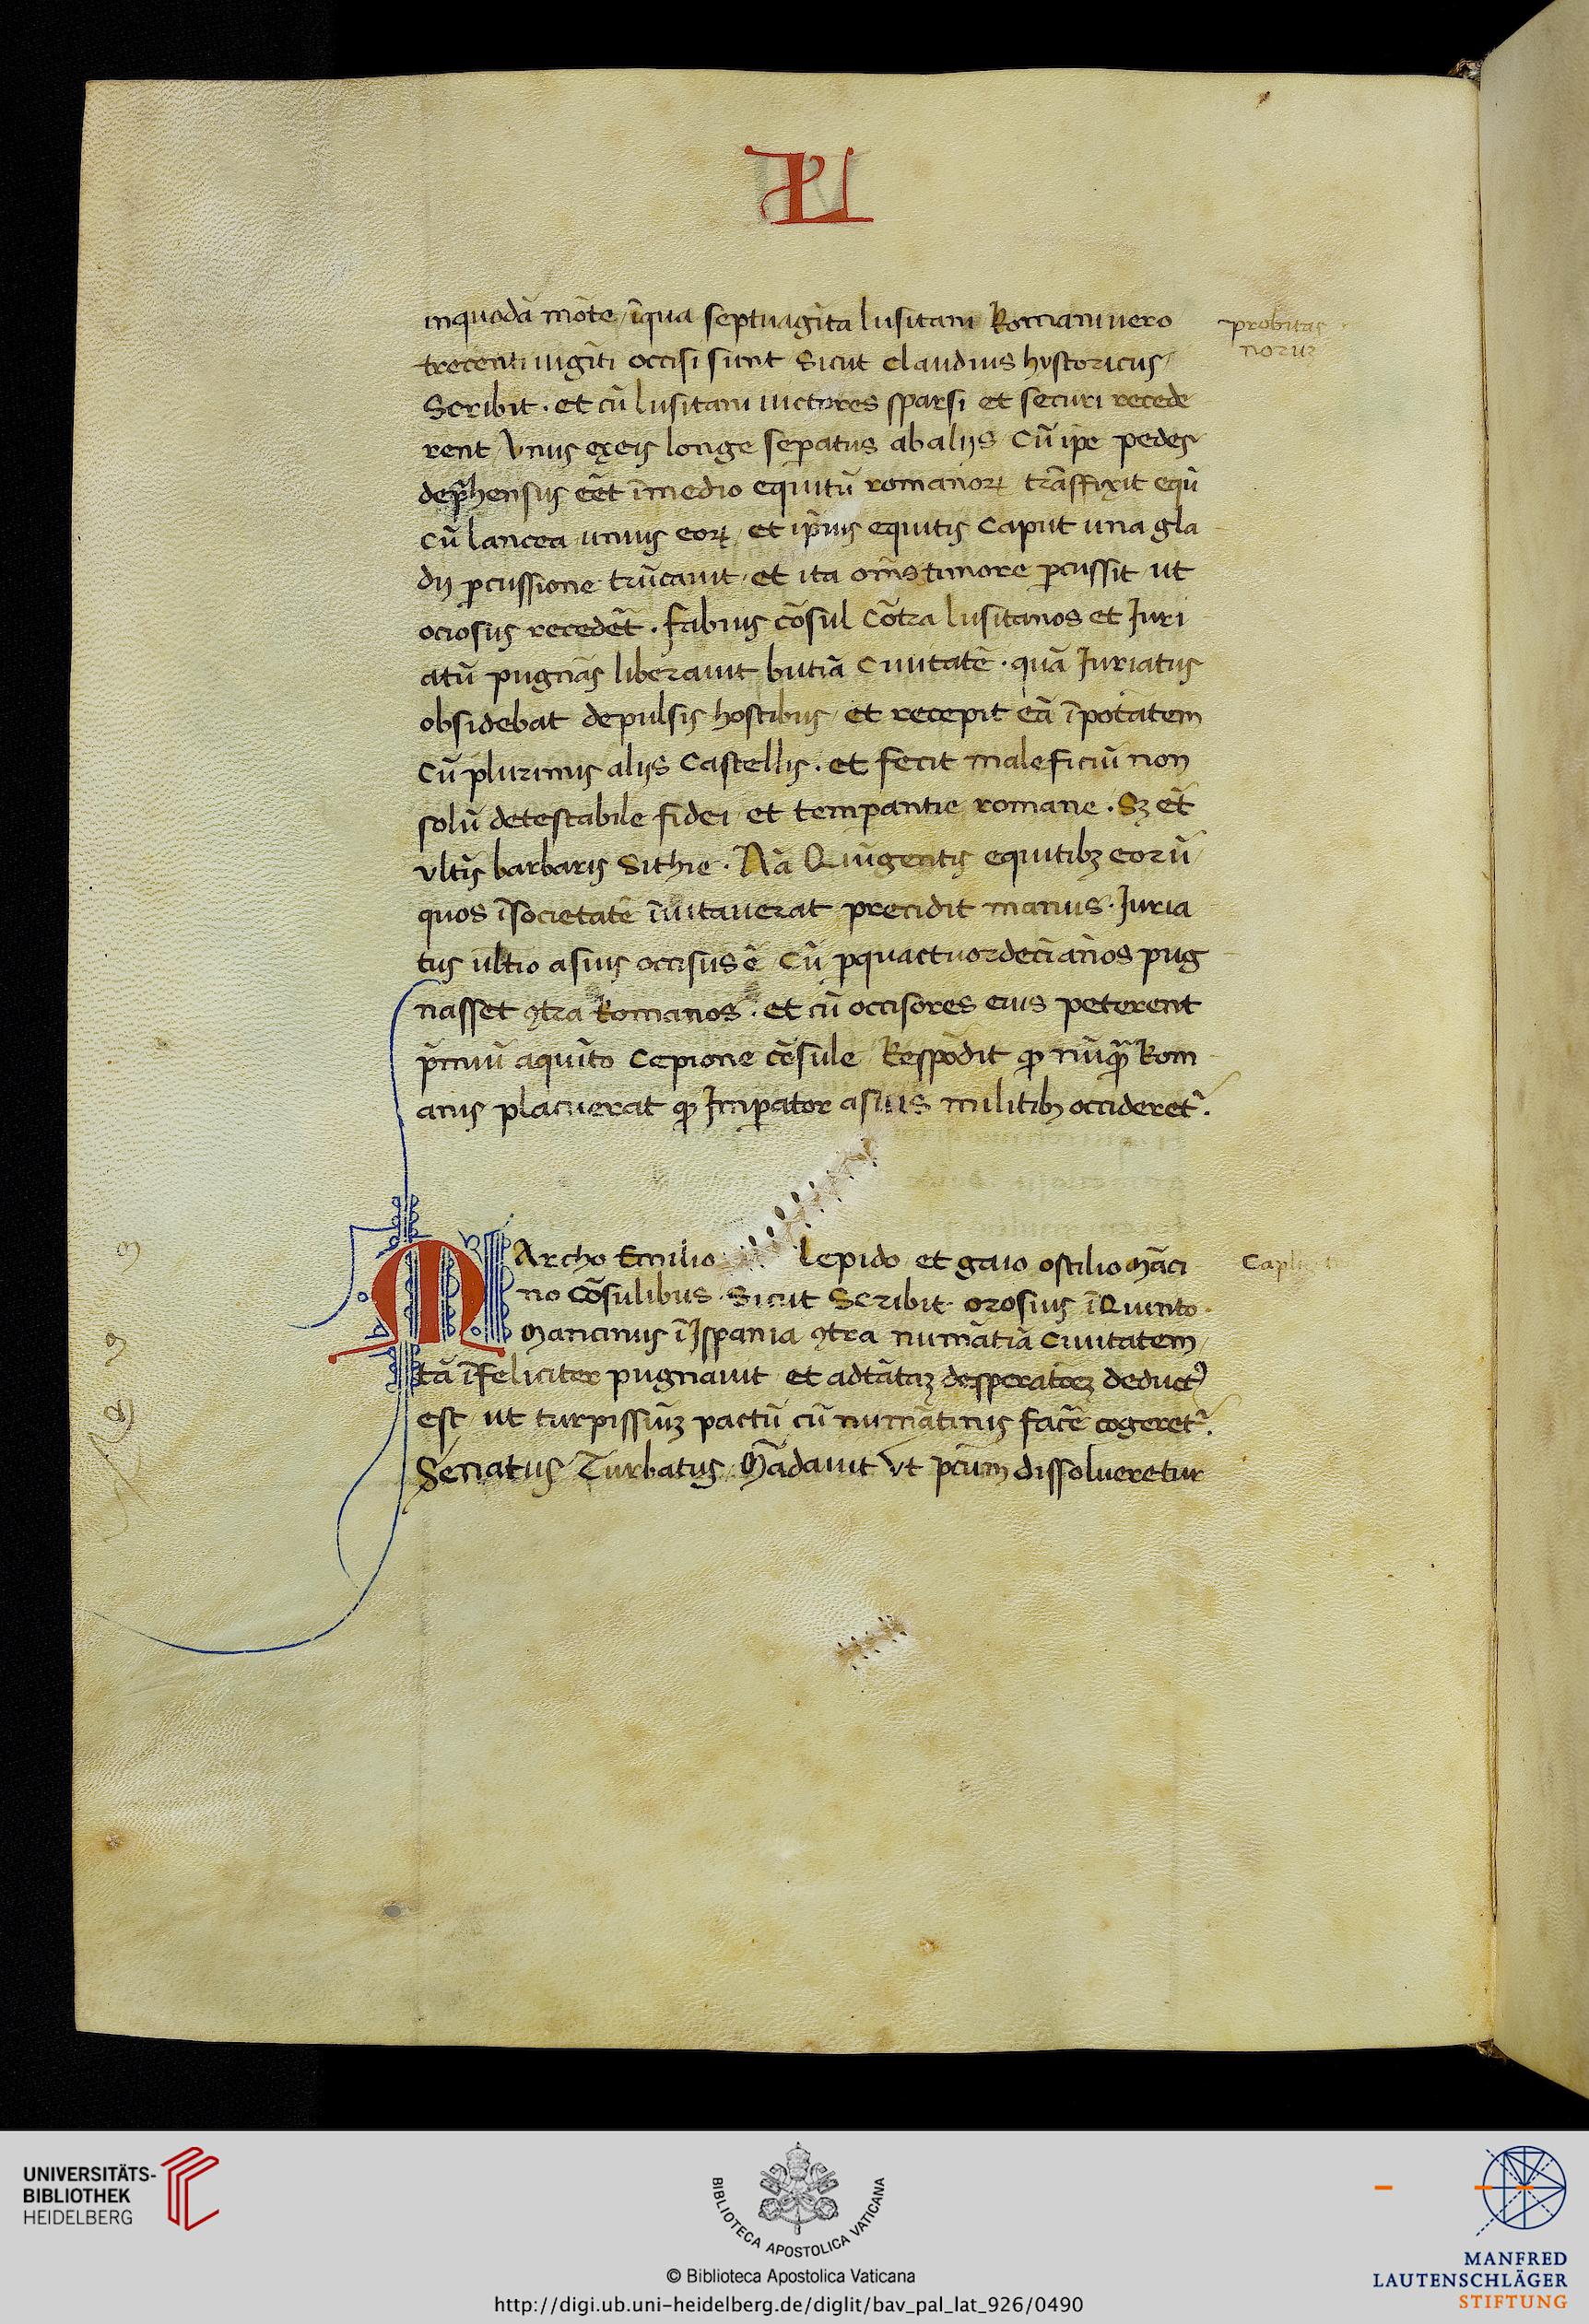 LI
inquodā mōte / īqua septuagīta lusitani Romani uero
trecenti uigīti occisi sunt Sicut claudius hystoricus /
Scribit · et cū lusitani uictores sparsi et securi recede
rent / Vnus exeis longe seꝑatus abalijs Cū ipē pedes
dep̄hensus eēt īmedio equitū romanoꝝ trāsfixit equū
cū lancea unius eoꝝ / et ipīus equitis Caput una gla
dij ꝑcussione trūcauit / et ita om̄s timore ꝑcussit / ut
ociosus recedēt · fabius cōsul Cōtra lusitanos et Juri
atū pugnās liberauit butiā Ciuitatē · quā Juriatus
obsidebat depulsis hostibus / et recepit eā īpotātem
Cū plurimis alijs Castellis · et fecit maleficiū non
solū detestabile fidei / et tempantie romane · Sꝫ et̄
vltīs barbaris Sithie · Nā Quīgentis equitibꝫ eorū /
quos īsocietatē īuitauerat precidit manus · Juria
tus ultīo asuis occisus ē / Cū ꝑquactuordecī ānos pug
nasset ꝯtra Romanos · et cū occisores eius peterent
p̄miū aquīto Cepione cōsule / Respōdit ꝙ nūꝗ̄ Rom
anis placuerat ꝙ Imꝑator asuis militibꝫ occideret᷑ ·
MArcho Emilio lepido / et gaio ostilio Māci
no Cōsulibus · Sicut Scribit · orosius īQuinto ·
Mancinus īJspania ꝯtra numātiā Ciuitatem /
tā īfeliciter pugnauit / et adtātaꝫ desperatōeꝫ deductꝰ
est / ut turpissīuꝫ pactū cū numātinis facē cogeret᷑ ·
Senatus Turbatus / Mādauit Vt pc̄um dissolueretur
probitas
noruꝫ
UNIVERSITÄTS-
BIBLIOTHEK
HEIDELBERG
BIBLIOTECA APOSTOLICA VATICANA
© Biblioteca Apostolica Vaticana
http://digi.ub.uni-heidelberg.de/diglit/bav_pal_lat_926/0490
MANFRED
LAUTENSCHLÄGER
STIFTUNG